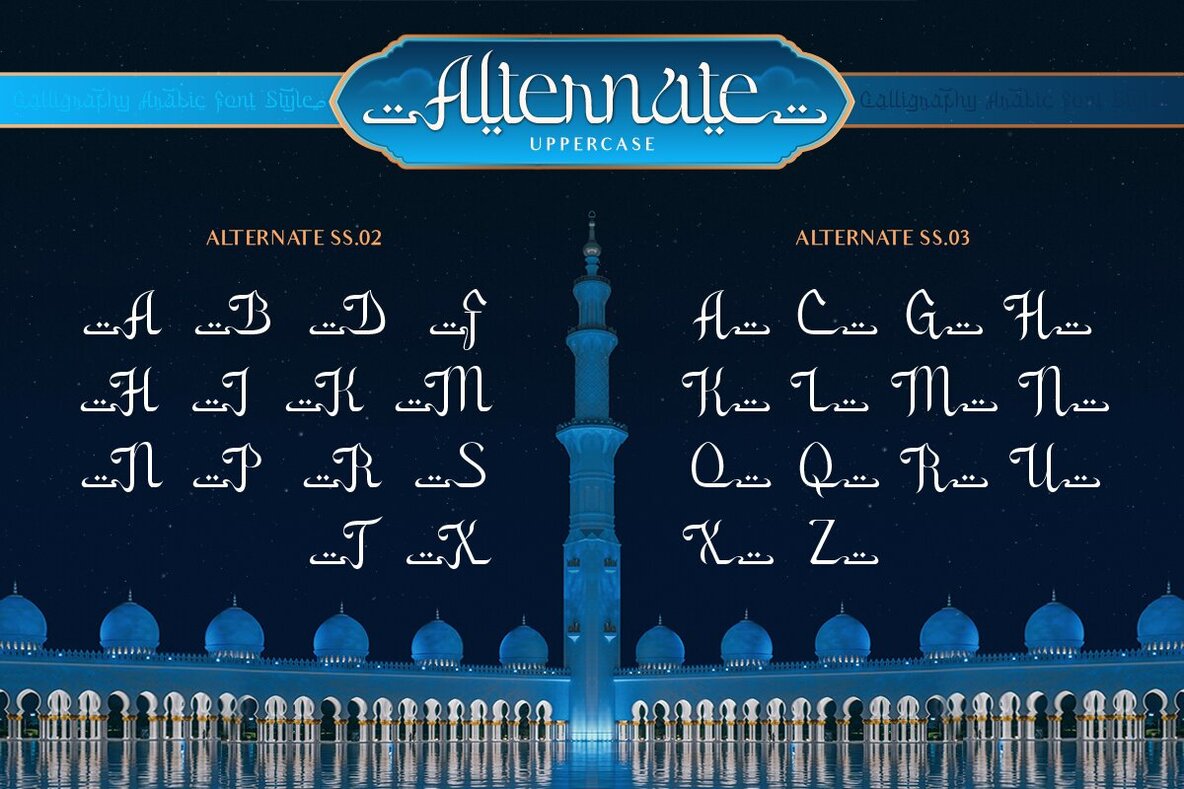 Calligraphy Arabic Font Style
Alternate
Calligraphy Arabic Font Style
UPPERCASE
ALTERNATE SS.02
A B D F
H I K M
N P R S
T X
ALTERNATE SS.03
A C G H
K L M N
O Q R U
X Z